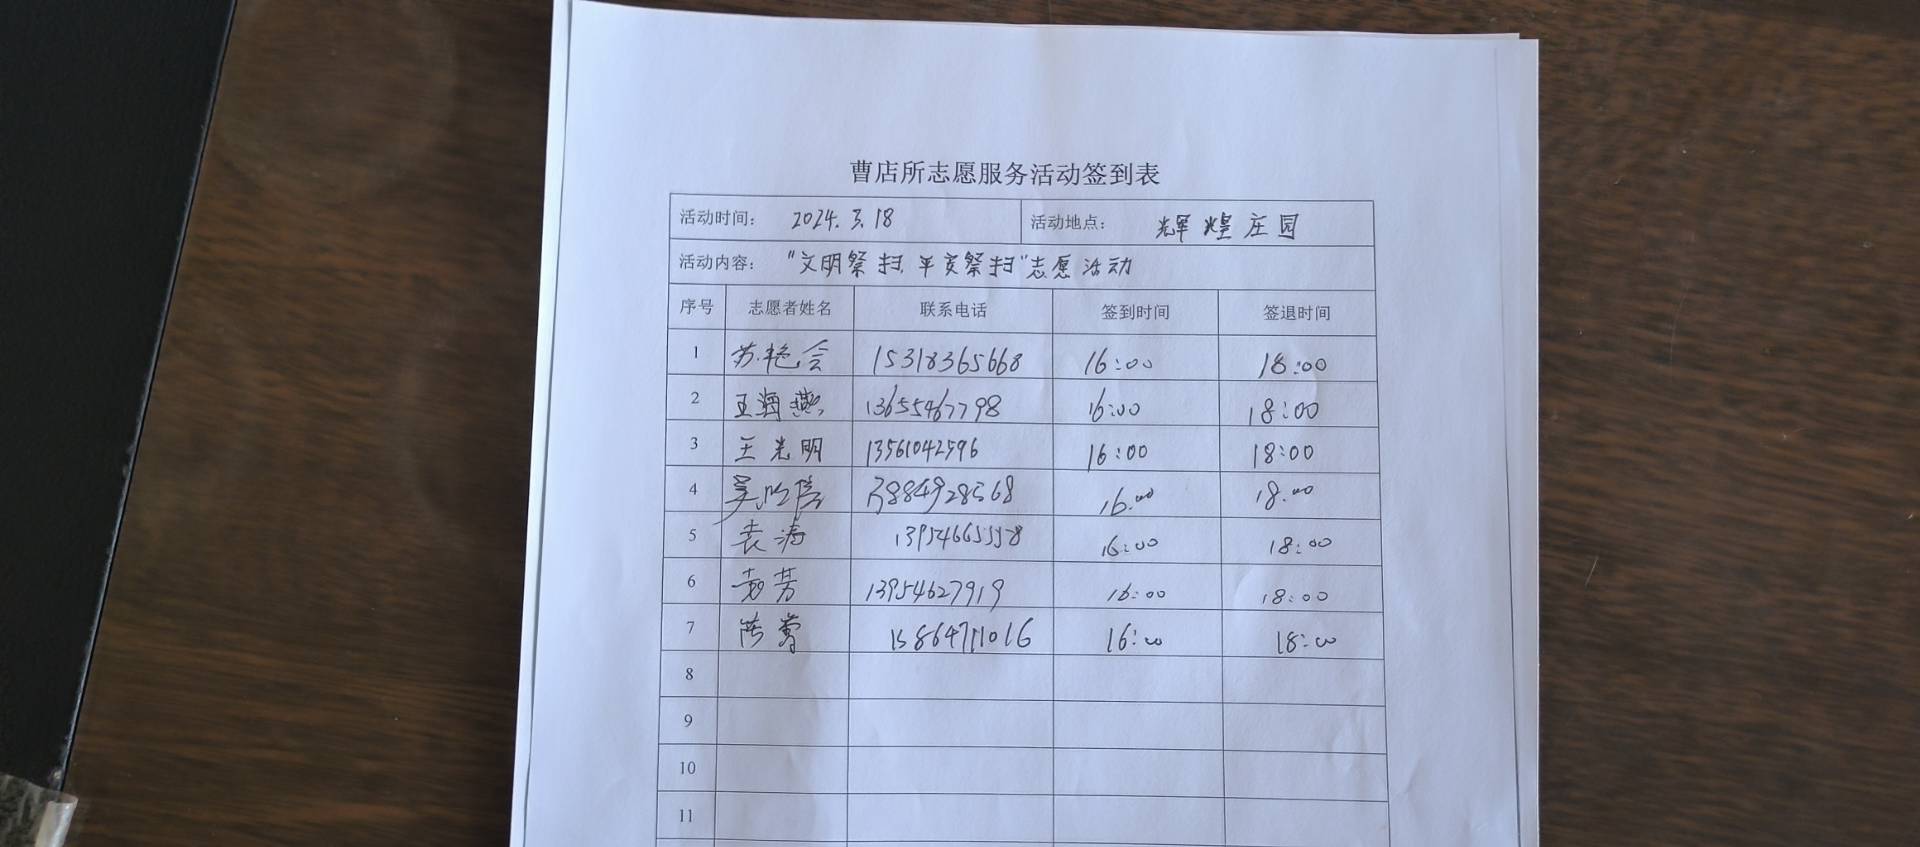 曹店所志愿服务活动签到表
活动时间： 2024.3.18 活动地点： 辉煌庄园
活动内容： “文明祭扫，平安祭扫”志愿活动
序号 志愿者姓名 联系电话 签到时间 签退时间
1 苏艳会 15318365668 16:00 18:00
2 王海燕 13655467798 16:00 18:00
3 王光明 13561042596 16:00 18:00
4 13884928568 16:00 18:00
5 袁涛 13954665558 16:00 18:00
6 袁芳 13954627919 16:00 18:00
7 15864711016 16:00 18:00
8
9
10
11